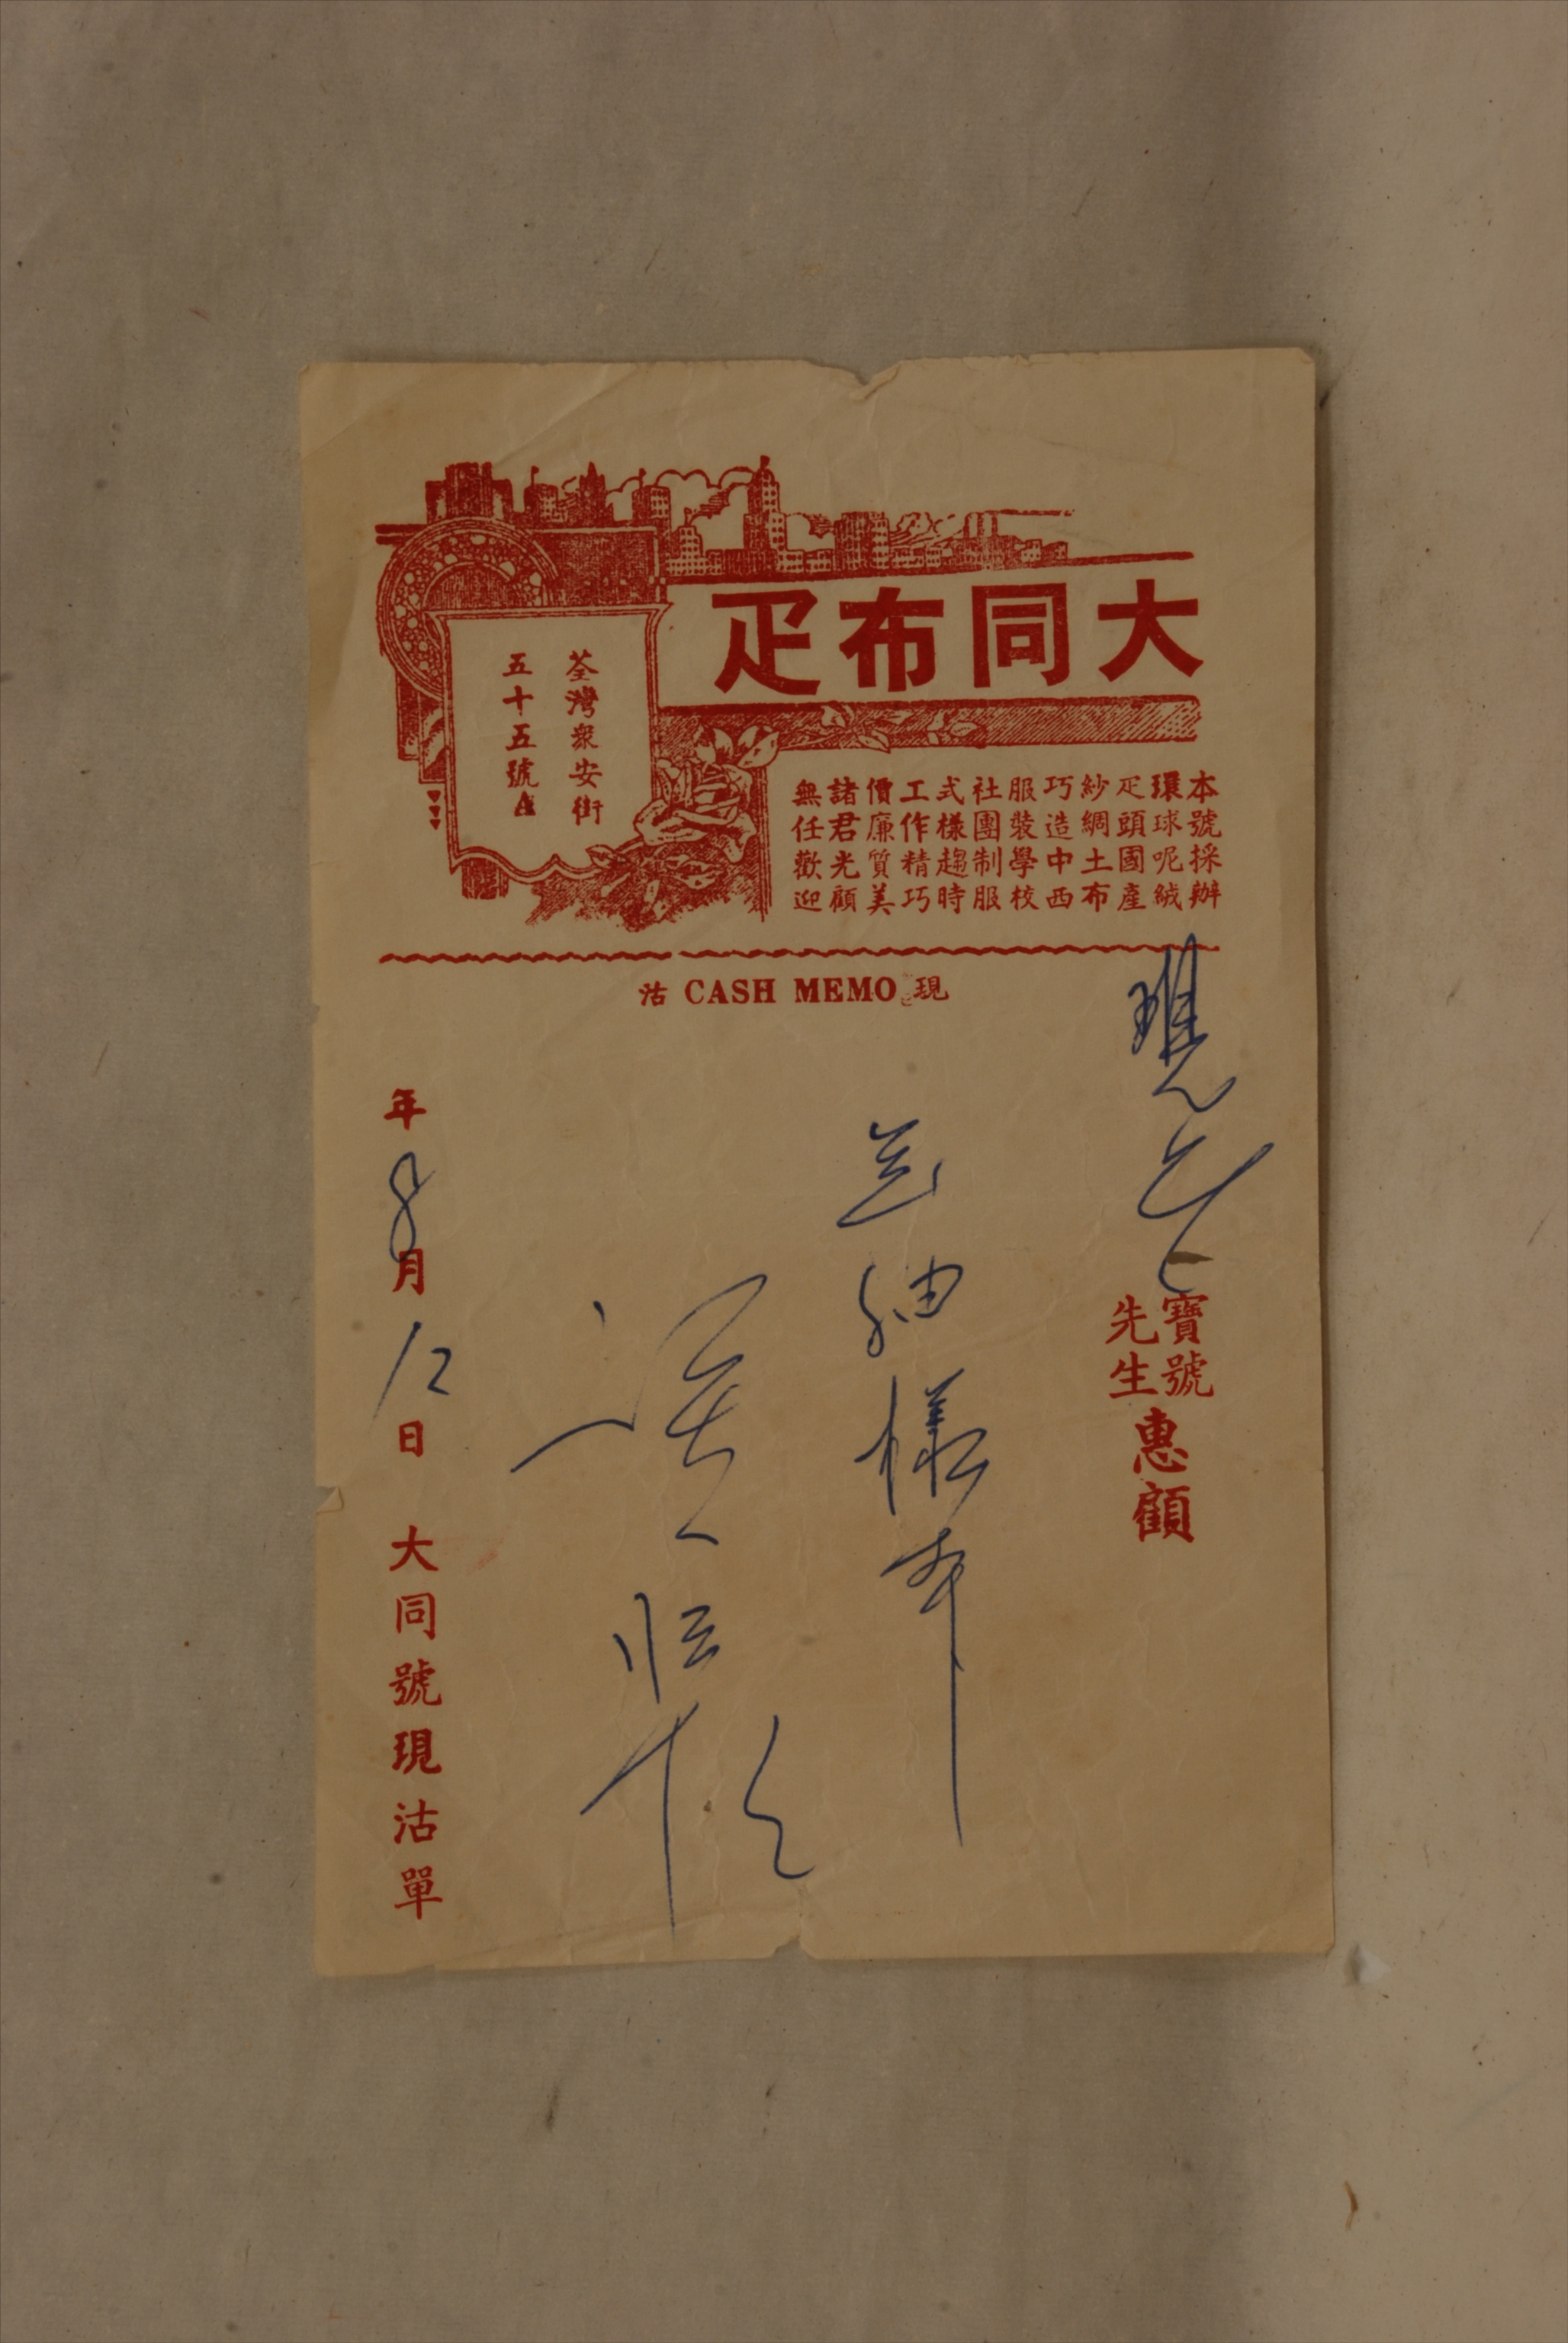 大同布疋
荃灣衆安街
五十五號A
本號採辦
環球呢絨
疋頭國產
紗綢土布
巧造中西
服裝學校
社團制服
式樣趨時
工作精巧
價廉質美
諸君光顧
無任歡迎
現 CASH MEMO 沽
寶號
先生
惠顧
樣
年8月12日 大同號現沽單